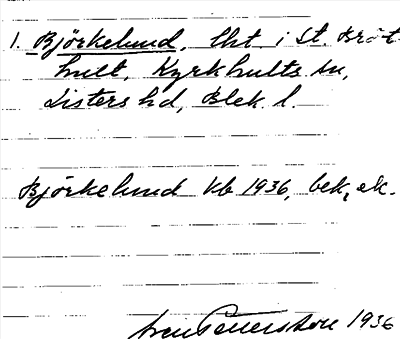 1. Björkelund, lht i St. Bröt-
hult, Kyrkhults sn,
Listers hd, Blek. l.
Björkelund Kb 1936, bek, ek.
Pettersson 1936